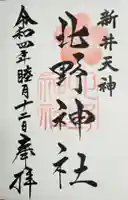 新井天神
北野神社
令和四年睦月十二日奉拝